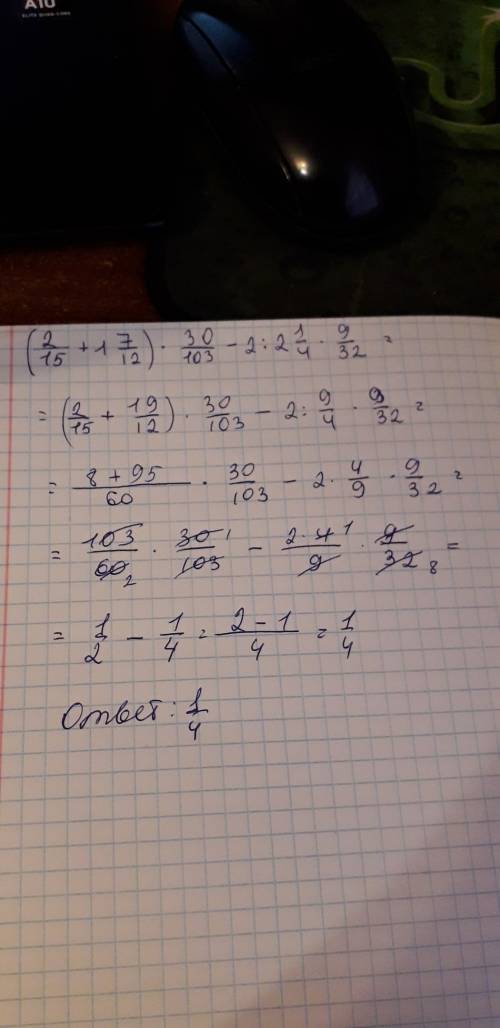 A10
ELITE QUAD-CORE
(2/15 + 1 7/12) · 30/103 - 2 : 2 1/4 · 9/32 =
= (2/15 + 19/12) · 30/103 - 2 : 9/4 · 9/32 =
= (8 + 95)/60 · 30/103 - 2 · 4/9 · 9/32 =
= 103/60 2 · 30 1/103 - 2 · 4 1/9 · 9/32 8 =
= 1/2 - 1/4 = (2 - 1)/4 = 1/4
Ответ: 1/4